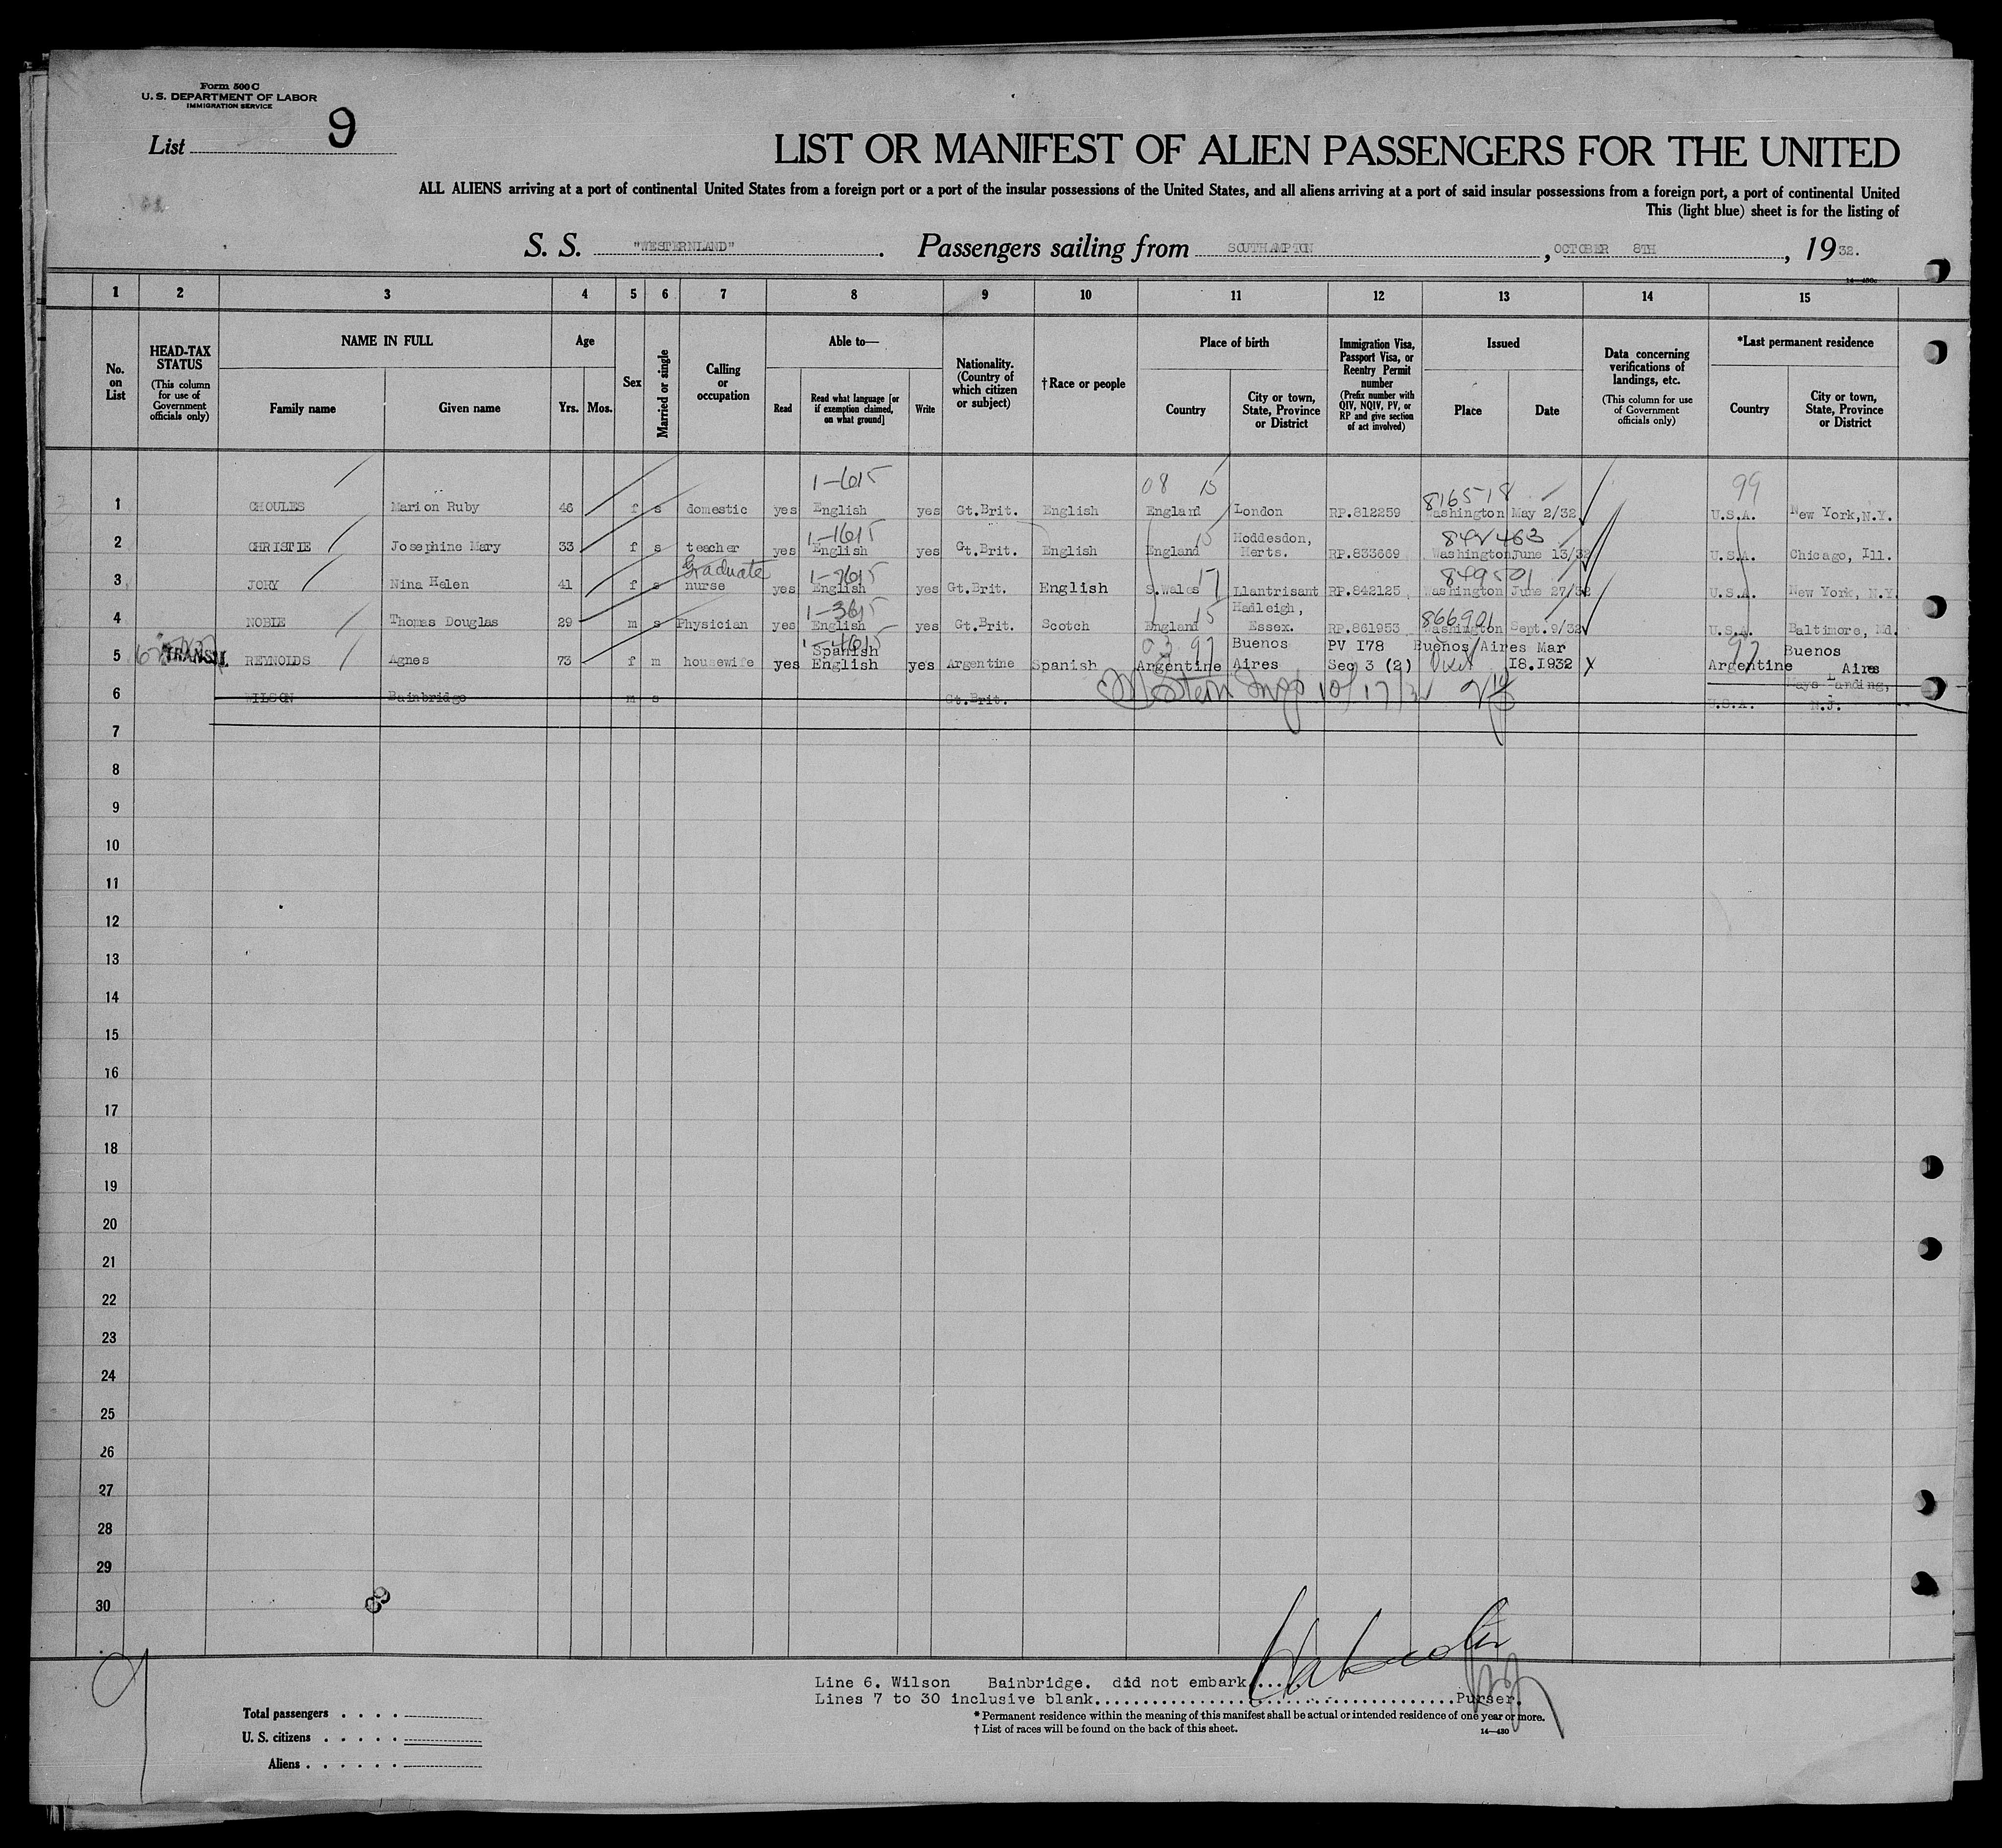 Form 500 C
U. S. DEPARTMENT OF LABOR
IMMIGRATION SERVICE
List 9
LIST OR MANIFEST OF ALIEN PASSENGERS FOR THE UNITED
ALL ALIENS arriving at a port of continental United States from a foreign port or a port of the insular possessions of the United States, and all aliens arriving at a port of said insular possessions from a foreign port, a port of continental United
This (light blue) sheet is for the listing of
S. S. "WESTERNLAND". Passengers sailing from SOUTHAMPTON, OCTOBER 8TH, 1932.
14—430c
1 2 3 4 5 6 7 8 9 10 11 12 13 14 15
No. on List
HEAD-TAX STATUS
(This column for use of Government officials only)
NAME IN FULL
Family name
Given name
Age
Yrs.
Mos.
Sex
Married or single
Calling or occupation
Able to—
Read
Read what language [or if exemption claimed, on what ground]
Write
Nationality. (Country of which citizen or subject)
†Race or people
Place of birth
Country
City or town, State, Province or District
Immigration Visa, Passport Visa, or Reentry Permit number
(Prefix number with QIV, NQIV, PV, or RP and give section of act involved)
Issued
Place
Date
Data concerning verifications of landings, etc.
(This column for use of Government officials only)
*Last permanent residence
Country
City or town, State, Province or District
1-615 08 15 816518 99
1 CHOULES Marion Ruby 46 f s domestic yes English yes Gt.Brit. English England London RP.812259 Washington May 2/32 U.S.A. New York,N.Y.
1-1615 15 Hoddesdon, 842463
2 CHRISTIE Josephine Mary 33 f s teacher yes English yes Gt.Brit. English England Herts. RP.833669 Washington June 13/32 U.S.A. Chicago, Ill.
Graduate 1-2615 17 849501
3 JORY Nina Helen 41 f s nurse yes English yes Gt.Brit. English S.Wales Llantrisant RP.842125 Washington June 27/32 U.S.A. New York, N.Y.
1-3615 15 Hadleigh, 866901
4 NOBLE Thomas Douglas 29 m s Physician yes English yes Gt.Brit. Scotch England Essex. RP.861953 Washington Sept. 9/32 U.S.A. Baltimore, Md.
1-4615 Spanish 03 97 Buenos PV 178 Buenos Aires Mar 97 Buenos
5 TRANSIT. REYNOLDS Agnes 73 f m housewife yes English yes Argentine Spanish Argentine Aires Seq 3 (2) 18.1932 Argentine Aires
Mays Landing,
6 WILSON Bainbridge m s Gt.Brit. 10/17/32 U.S.A. N.J.
7
8
9
10
11
12
13
14
15
16
17
18
19
20
21
22
23
24
25
26
27
28
29
30
Line 6. Wilson Bainbridge. did not embark......
Lines 7 to 30 inclusive blank......................................Purser.
* Permanent residence within the meaning of this manifest shall be actual or intended residence of one year or more.
† List of races will be found on the back of this sheet.
14—430
Total passengers . . . .
U. S. citizens . . . . .
Aliens . . . . . .